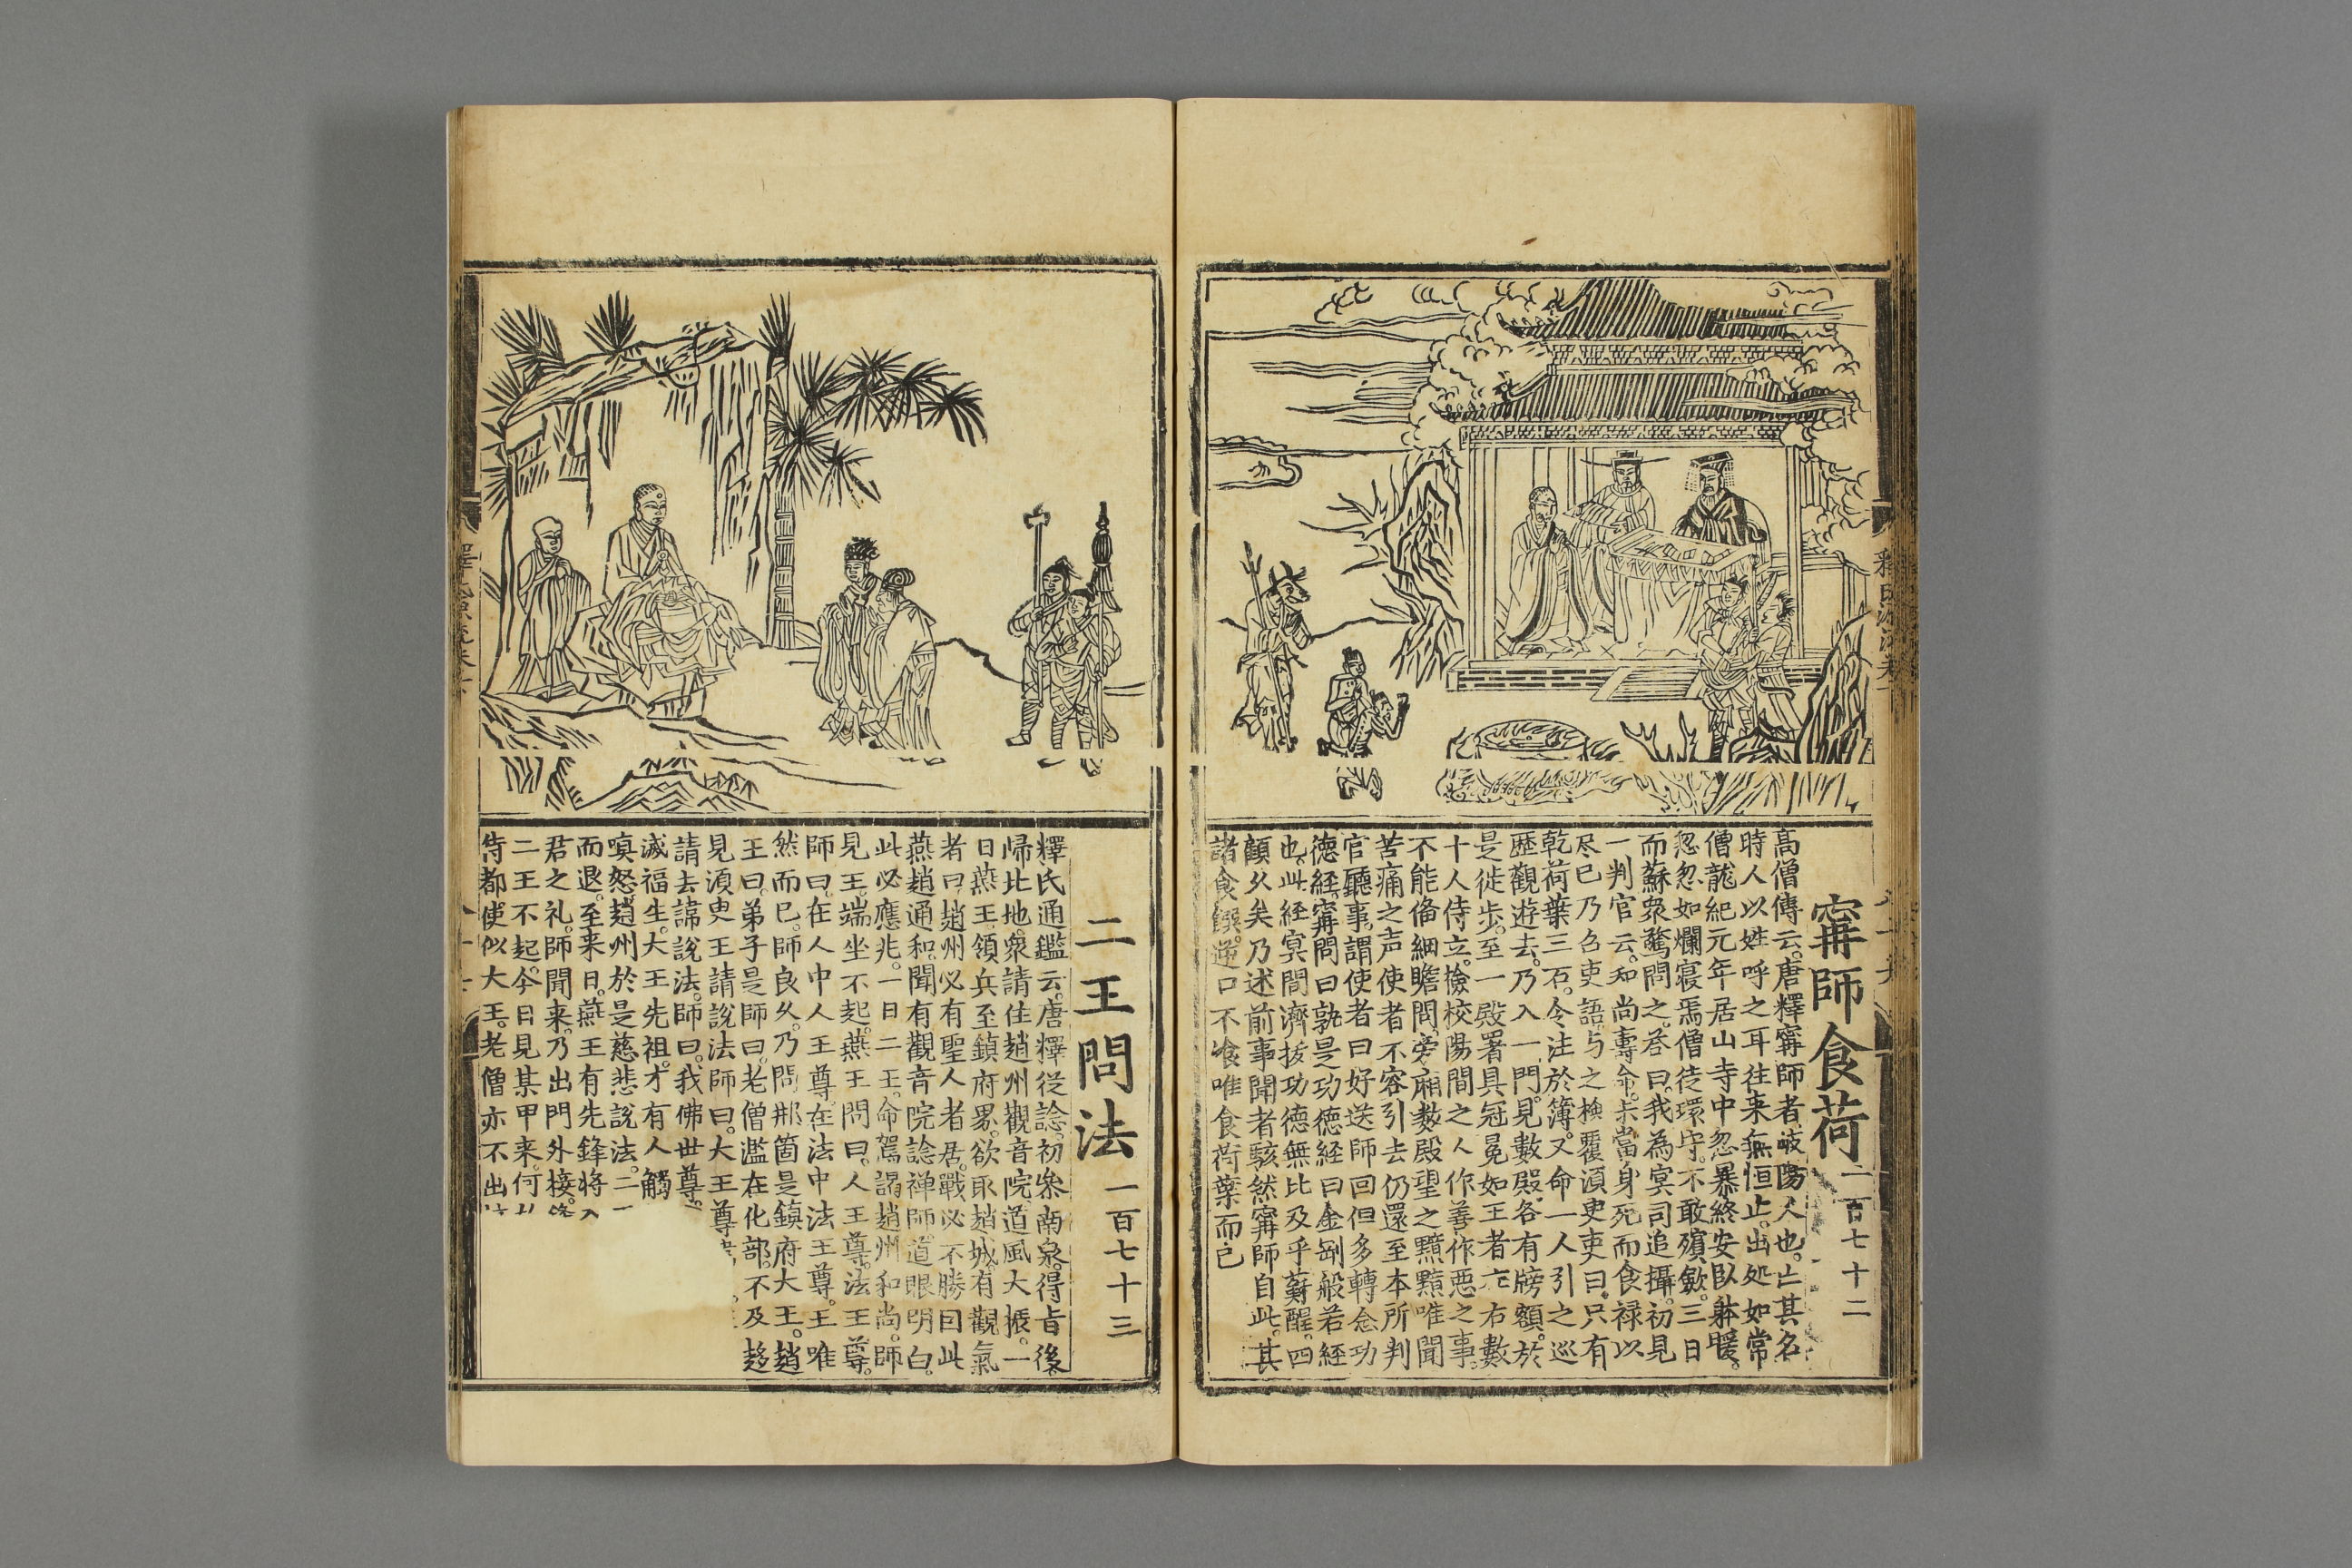 甯師食荷 二百七十二
高僧傳云。唐釋甯師者。岐陽人也。亡其名
時人以姓呼之耳。往来無恒止。出処如常
僧龍紀元年居山寺中忽暴終安臥躰暖。
忽忽如爛寢焉僧徒環守。不敢殯斂。三日
而蘇衆驚問之。答曰。我為冥司追攝。初見
一判官云。和尚壽命未當身死而食禄以
尽已乃召吏語与之檢覆湏吏吏曰。只有
乾荷葉三石。令注於簿。又命一人引之巡
歴觀遊去。乃入一門。見數殿各有牓額。於
是徙歩。至一殿署具冠冕如王者左右數
十人侍立。撿校陽間之人作善作悪之事。
不能俻細瞻問旁廂數殿望之黯黯唯聞
苦痛之声使者不容引去仍還至本所判
官聽事。謂使者曰好送師回但多轉念功
德經。甯問曰孰是功德經曰金剛般若經
也。此経冥間濟拔功德無比及乎蘇醒。四
顧久矣乃述前事聞者駭然甯師自此。其
諸食饌。逆口不喰唯食荷葉而已
二王問法 一百七十三
釋氏通鑑云。唐釋從諗。初叅南泉。得旨後
歸北地。衆請住趙州觀音院。道風大振。一
日燕王領兵至鎮府界。欲取趙城。有觀氣
者曰。趙州必有聖人者居。戰必不勝回此
燕趙通和。聞有觀音院諗禅師。道眼明白。
此必應兆。一日二王。命駕謁趙州和尚。師
見王端坐不起。燕王問曰。人王尊。法王尊。
師曰。在人中人王尊。在法中法王尊。王唯
然而已。師良久。乃問那箇是鎮府大王。趙
王曰。弟子是師曰。老僧濫在化部。不及趍
見湏臾王請說法師曰。大王尊
請去諱說法。師曰。我佛世尊
滅福生。大王先祖。才有人觸
嗔怒。趙州於是慈悲說法。二
而退。至来日。燕王有先鋒将
君之礼。師聞来。乃出門外接。
二王不起。今日見某甲来。何
侍都使似大王。老僧亦不出